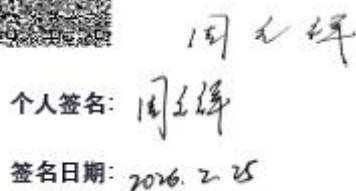 周光辉
个人签名: 周光辉
签名日期: 2026. 2. 25